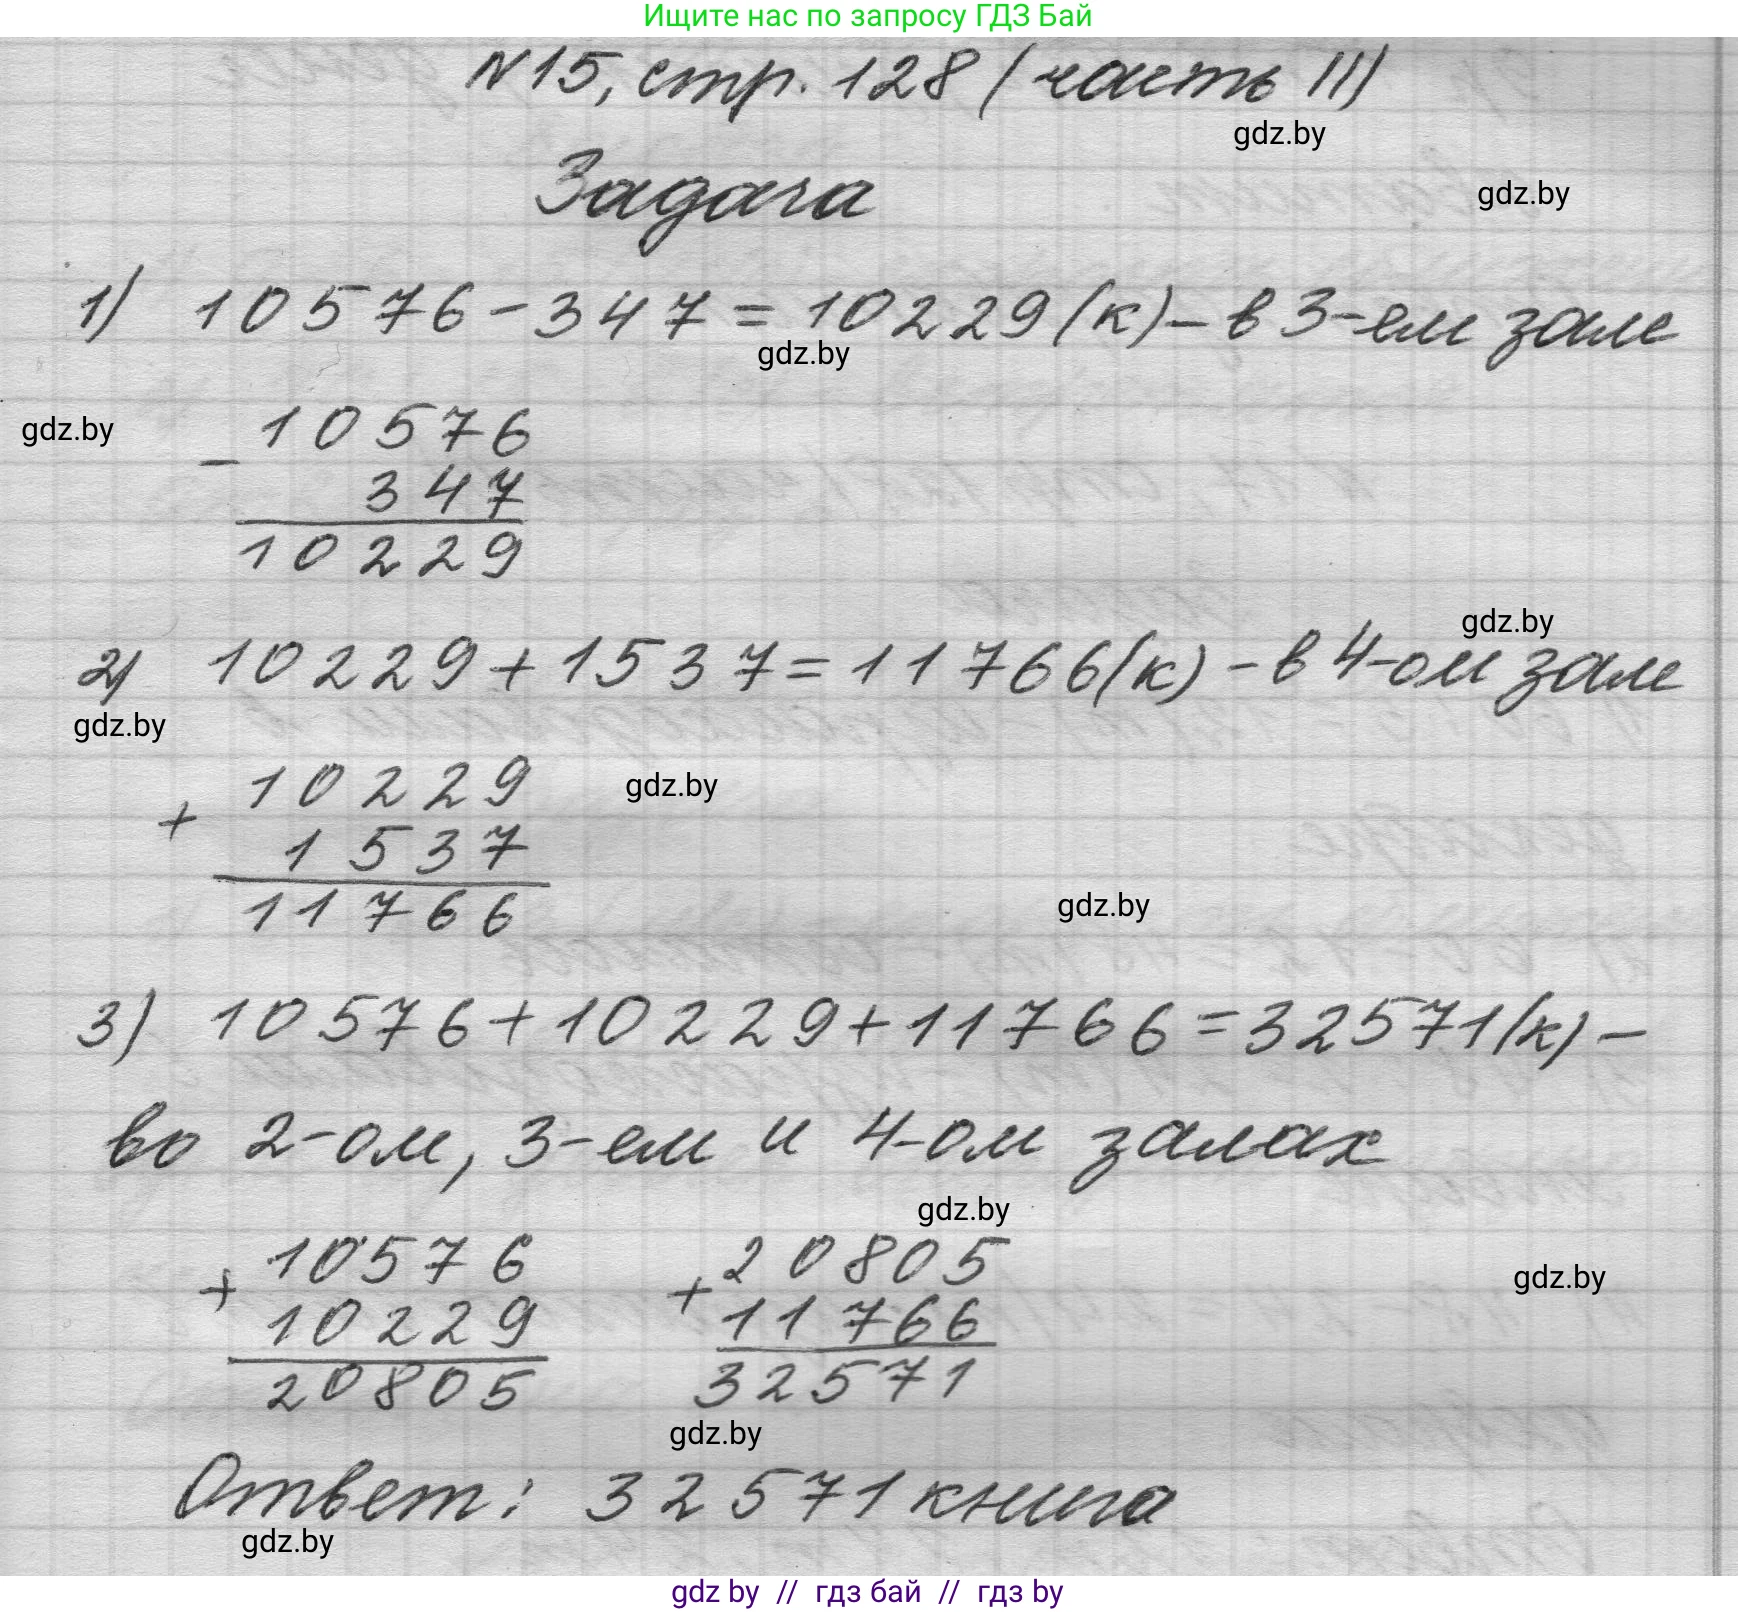 Ищите нас по запросу ГДЗ Бай
N15, стр. 128 (часть II)
gdz.by
Задача
gdz.by
1) 10576 - 347 = 10229 (к) - в 3-ем зале
gdz.by
10576
gdz.by
-
347
10229
gdz.by
2) 10229 + 1537 = 11766 (к) - в 4-ом зале
gdz.by
10229
gdz.by
+
1537
11766
gdz.by
3) 10576 + 10229 + 11766 = 32571 (к) -
во 2-ом, 3-ем и 4-ом залах
gdz.by
10576 20805
+ + gdz.by
10229 11766
20805 32571
gdz.by
Ответ: 32571 книга
gdz.by
gdz by // гдз бай // гдз by